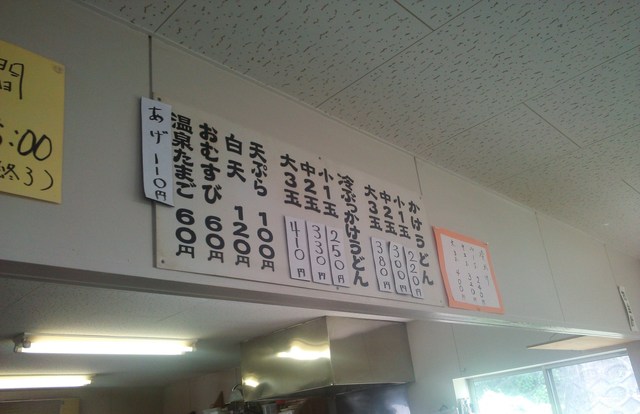 かけうどん
小1玉 220円
中2玉 300円
大3玉 380円
冷ぶっかけうどん
小1玉 250円
中2玉 330円
大3玉 410円
天ぷら 100円
白天 120円
おむすび 60円
温泉たまご 60円
あげ 110円
:00
終了)